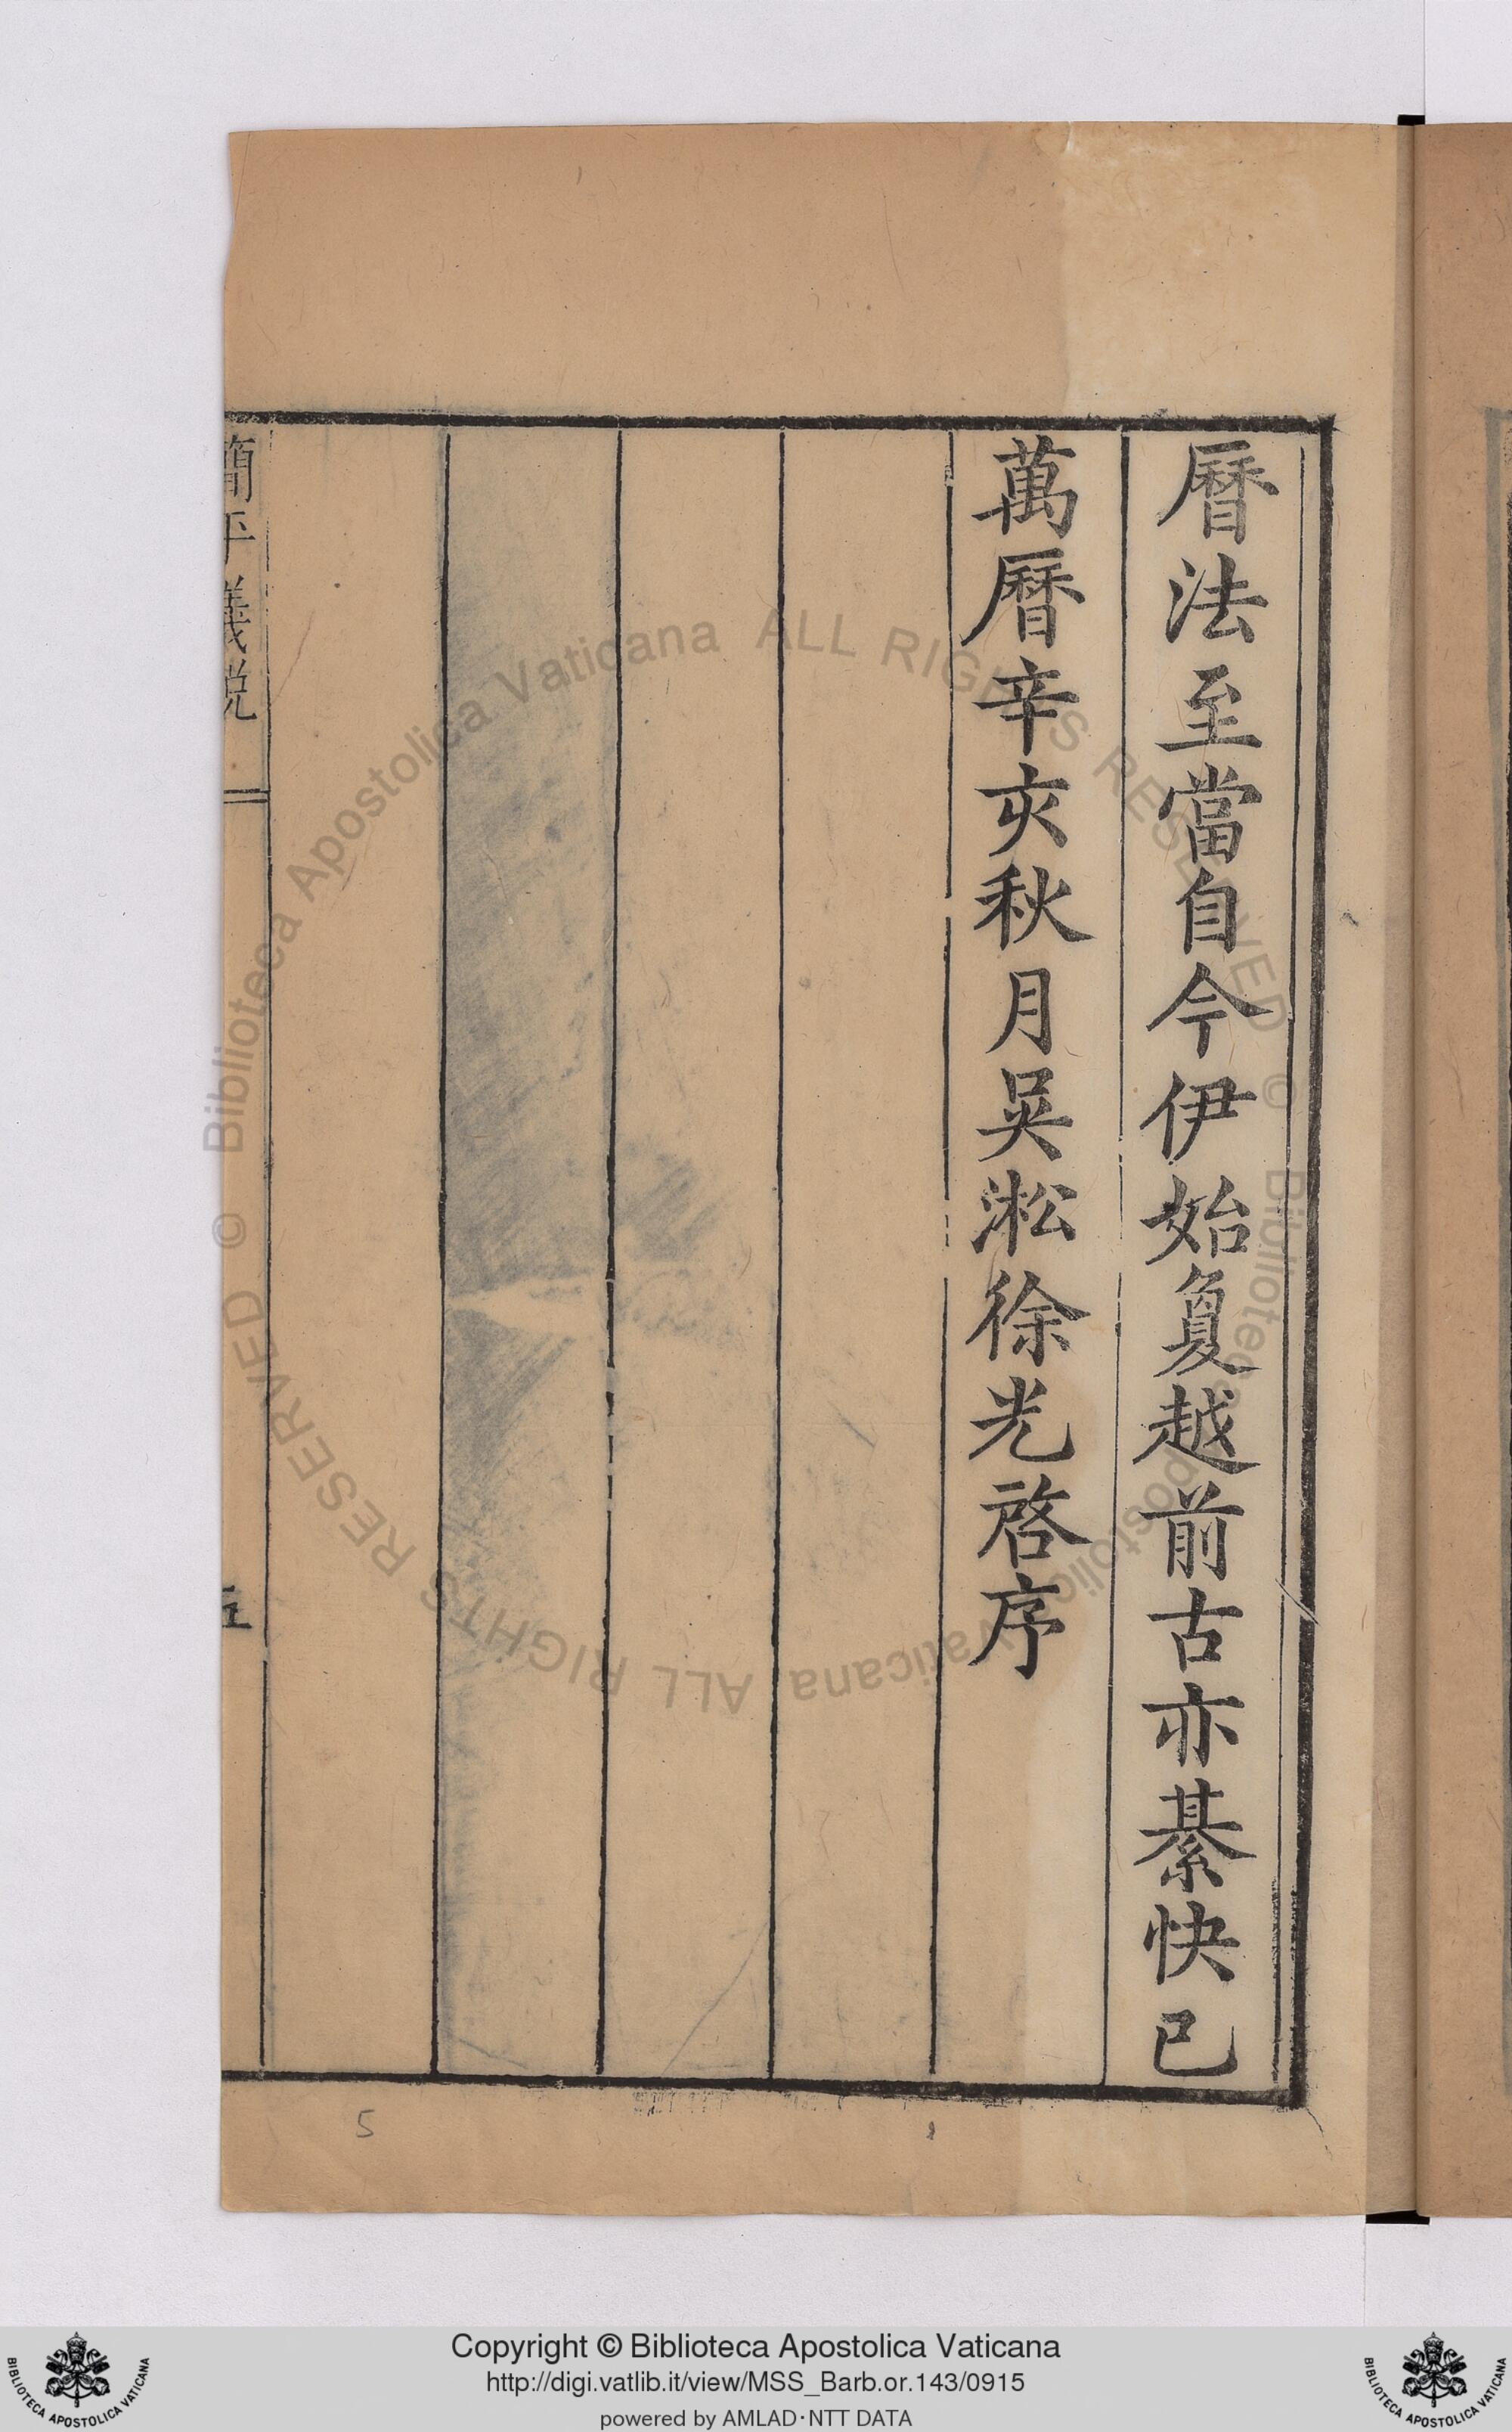 曆法至當自今伊始夐越前古亦綦快已
萬曆辛亥秋月吳淞徐光啓序
簡平儀説
五
5
© Biblioteca Apostolica Vaticana ALL RIGHTS RESERVED
© Biblioteca Apostolica Vaticana ALL RIGHTS RESERVED
BIBLIOTECA APOSTOLICA VATICANA
Copyright © Biblioteca Apostolica Vaticana
http://digi.vatlib.it/view/MSS_Barb.or.143/0915
powered by AMLAD·NTT DATA
BIBLIOTECA APOSTOLICA VATICANA